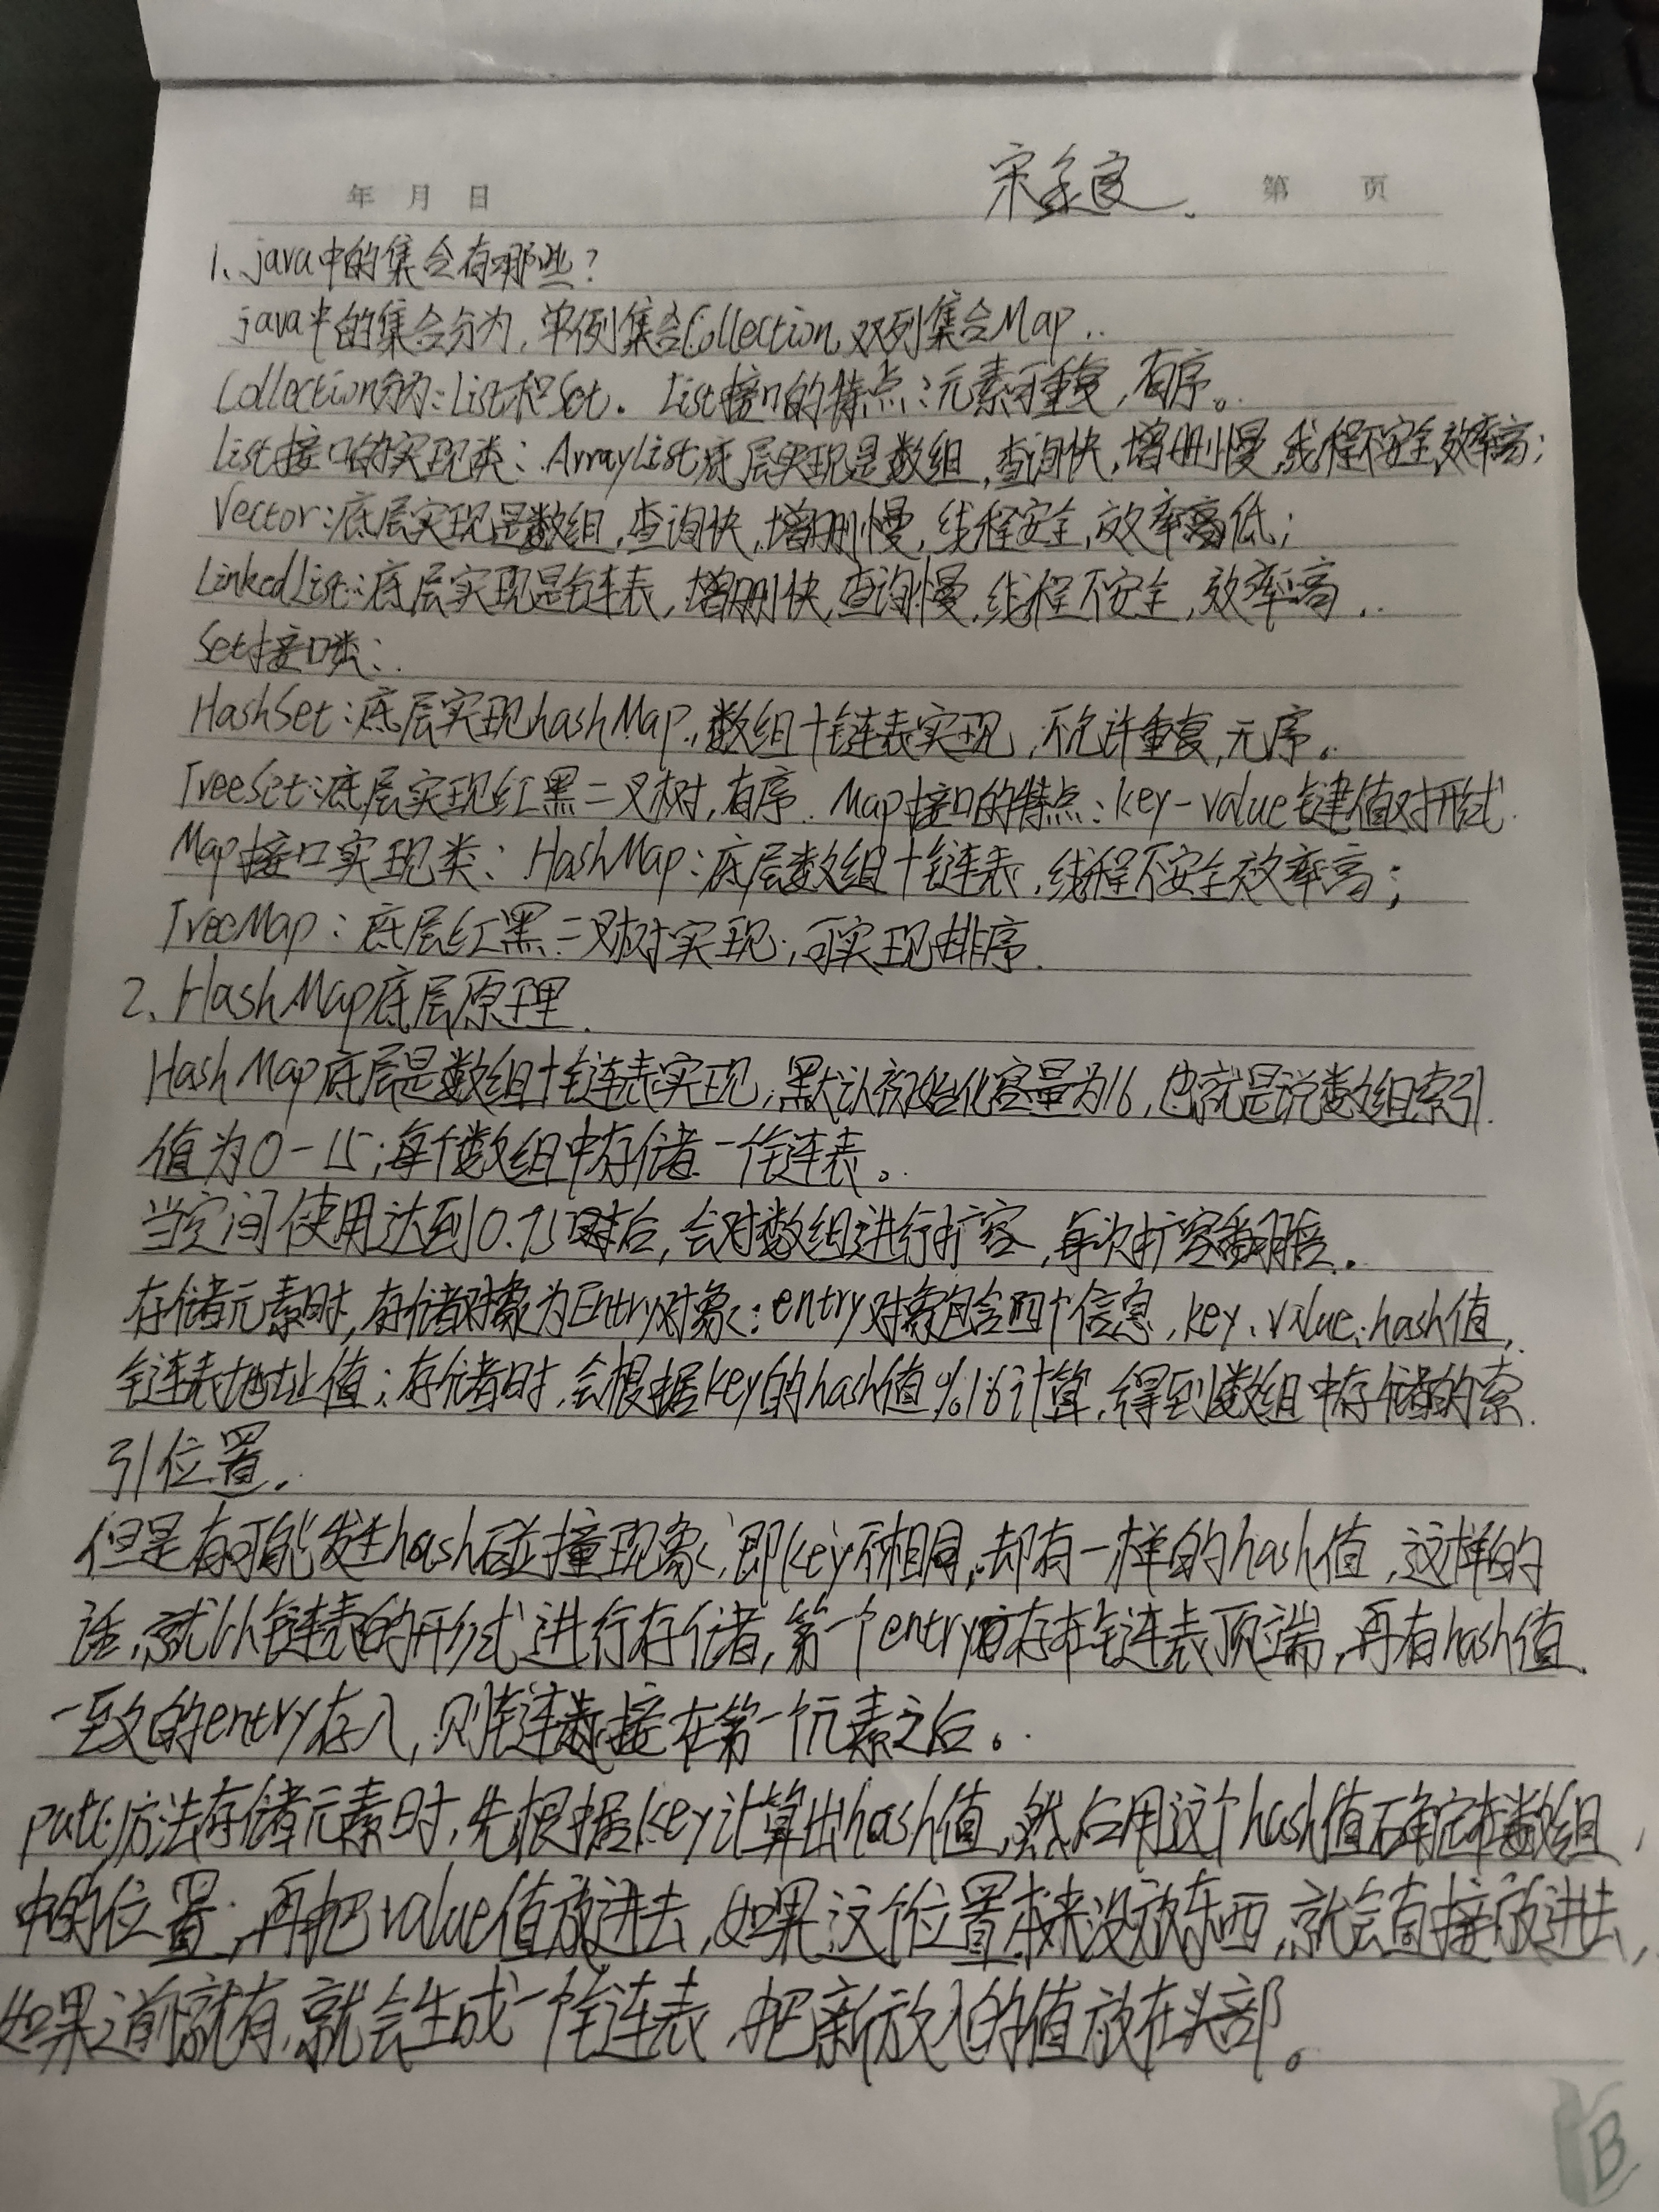 年 月 日 宋 第 页
1、java中的集合有哪些?
java中的集合分为,单例集合Collection,双列集合Map..
Collection分为:List和Set. List接口的特点:元素可重复,有序。
List接口的实现类:ArrayList底层实现是数组,查询快,增删慢,线程不安全,效率高;
Vector:底层实现是数组,查询快,增删慢,线程安全,效率低;
LinkedList:底层实现是链表,增删快,查询慢,线程不安全,效率高..
Set接口类:.
HashSet:底层实现hashMap.,数组+链表实现,不允许重复,无序。
TreeSet:底层实现红黑二叉树,有序. Map接口的特点:key-value键值对形式.
Map接口实现类:HashMap:底层数组+链表,线程不安全效率高;
TreeMap:底层红黑二叉树实现,可实现排序.
2、HashMap底层原理.
HashMap底层是数组+链表实现,默认初始化容量为16,也就是说数组索引
值为0-15;每个数组中存储一个链表。
当空间使用达到0.75时后,会对数组进行扩容,每次扩容翻倍.
存储元素时,存储对象为Entry对象:entry对象包含四个信息,key、value、hash值,
链表地址值;存储时,会根据key的hash值%16计算,得到数组中存储的索
引位置.
但是有可能发生hash碰撞现象,即key不相同,却有一样的hash值,这样的
话,就以链表的形式进行存储,第一个entry存在链表顶端,再有hash值
一致的entry存入,则链表接在第一个元素之后。
put()方法存储元素时,先根据key计算出hash值,然后用这个hash值确定在数组
中的位置,再把value值放进去,如果这个位置本来没放东西,就会直接放进去,
如果之前就有,就会生成一个链表,把新放入的值放在头部。
B